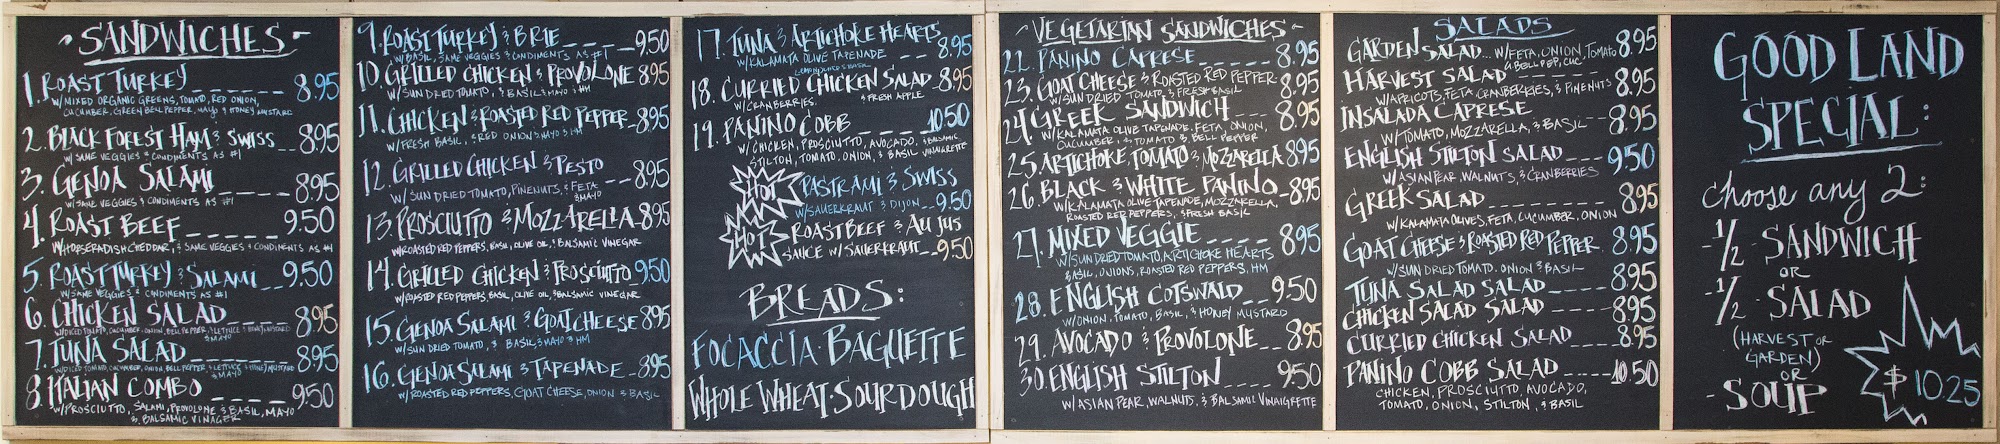 SANDWICHES
1. ROAST TURKEY _ _ _ _ 8.95
W/MIXED ORGANIC GREENS, TOMATO, RED ONION,
CUCUMBER, GREEN BELL PEPPER, MAYO & HONEY MUSTARD
2. BLACK FOREST HAM & SWISS _ _ 8.95
W/ SAME VEGGIES & CONDIMENTS AS #1
3. GENOA SALAMI _ _ _ _ 8.95
W/ SAME VEGGIES & CONDIMENTS AS #1
4. ROAST BEEF _ _ _ _ 9.50
W/HORSERADISH CHEDDAR, & SAME VEGGIES & CONDIMENTS AS #1
5. ROAST TURKEY & SALAMI _ _ 9.50
W/ SAME VEGGIES & CONDIMENTS AS #1
6. CHICKEN SALAD _ _ _ _ 8.95
W/DICED TOMATO, CUCUMBER, ONION, BELL PEPPER, & LETTUCE & HONEY MUSTARD
& MAYO
7. TUNA SALAD _ _ _ _ _ _ 8.95
W/DICED TOMATO, CUCUMBER, ONION, BELL PEPPER, & LETTUCE & HONEY MUSTARD
& MAYO
8. ITALIAN COMBO _ _ _ _ _ 9.50
W/PROSCIUTTO, SALAMI, PROVOLONE & BASIL, MAYO
& BALSAMIC VINAGER
9. ROAST TURKEY & BRIE _ _ _ _ 9.50
W/ BASIL, SAME VEGGIES & CONDIMENTS AS #1
10. GRILLED CHICKEN & PROVOLONE 8.95
W/ SUN DRIED TOMATO, & BASIL & MAYO & HM
11. CHICKEN & ROASTED RED PEPPER _ 8.95
W/ FRESH BASIL, & RED ONION & MAYO & HM
12. GRILLED CHICKEN & PESTO _ _ _ 8.95
W/ SUN DRIED TOMATO, PINENUTS, & FETA
& MAYO
13. PROSCIUTTO & MOZZARELLA _ 8.95
W/ROASTED RED PEPPERS, BASIL, OLIVE OIL, & BALSAMIC VINEGAR
14. GRILLED CHICKEN & PROSCIUTTO 9.50
W/ROASTED RED PEPPERS, BASIL, OLIVE OIL, & BALSAMIC VINEGAR
15. GENOA SALAMI & GOAT CHEESE 8.95
W/ SUN DRIED TOMATO, & BASIL, & MAYO & HM
16. GENOA SALAMI & TAPENADE _ 8.95
W/ ROASTED RED PEPPERS, GOAT CHEESE, ONION & BASIL
17. TUNA & ARTICHOKE HEARTS
W/KALAMATA OLIVE TAPENADE _ _ 8.95
18. CURRIED CHICKEN SALAD _ 8.95
W/CRANBERRIES. & FRESH APPLE
19. PANINO COBB _ _ _ _ _ 10.50
W/ CHICKEN, PROSCIUTTO, AVOCADO, & BALSAMIC
STILTON, TOMATO, ONION, & BASIL VINAIGRETTE
HOT PASTRAMI & SWISS
W/SAUERKRAUT & DIJON _ _ 9.50
HOT ROAST BEEF & AU JUS
SAUCE W/ SAUERKRAUT _ _ 9.50
BREADS:
FOCACCIA · BAGUETTE
WHOLE WHEAT · SOURDOUGH
VEGETARIAN SANDWICHES
22. PANINO CAPRESE _ _ _ _ _ 8.95
23. GOAT CHEESE & ROASTED RED PEPPER _ 8.95
W/ SUN DRIED TOMATO & FRESH BASIL
24. GREEK SANDWICH _ _ _ _ 8.95
W/ KALAMATA OLIVE TAPENADE, FETA, ONION,
CUCUMBER & TOMATO & BELL PEPPER
25. ARTICHOKE TOMATO & MOZZARELLA 8.95
26. BLACK & WHITE PANINO _ _ 8.95
W/KALAMATA OLIVE TAPENADE, MOZZARELLA,
ROASTED RED PEPPERS, & FRESH BASIL
27. MIXED VEGGIE _ _ _ _ _ 8.95
W/ SUN DRIED TOMATO, ARTICHOKE HEARTS
BASIL, ONIONS, ROASTED RED PEPPERS, HM
28. ENGLISH COTSWALD _ _ 9.50
W/ONION, TOMATO, BASIL, & HONEY MUSTARD
29. AVOCADO & PROVOLONE _ _ 8.95
30. ENGLISH STILTON _ _ _ _ 9.50
W/ ASIAN PEAR, WALNUTS, & BALSAMIC VINAIGRETTE
SALADS
GARDEN SALAD ... W/FETA, ONION, TOMATO 8.95
G. BELL PEP, CUC.
HARVEST SALAD _ _ _ _ 8.95
W/APRICOTS, FETA, CRANBERRIES, & PINENUTS
INSALADA CAPRESE _ _ _ _ 8.95
W/TOMATO, MOZZARELLA, & BASIL
ENGLISH STILTON SALAD _ _ _ _ 9.50
W/ASIAN PEAR, WALNUTS, & CRANBERRIES
GREEK SALAD _ _ _ _ _ 8.95
W/KALAMATA OLIVES, FETA, CUCUMBER, ONION
GOAT CHEESE & ROASTED RED PEPPER 8.95
W/SUN DRIED TOMATO, ONION & BASIL
TUNA SALAD SALAD _ _ _ _ 8.95
CHICKEN SALAD SALAD _ _ _ 8.95
CURRIED CHICKEN SALAD _ _ _ 8.95
PANINO COBB SALAD _ _ _ _ 10.50
CHICKEN, PROSCIUTTO, AVOCADO,
TOMATO, ONION, STILTON, & BASIL
GOOD LAND
SPECIAL:
choose any 2:
- 1/2 - SANDWICH
OR
- 1/2 - SALAD
(HARVEST OR
GARDEN)
OR
- SOUP
$ 10.25